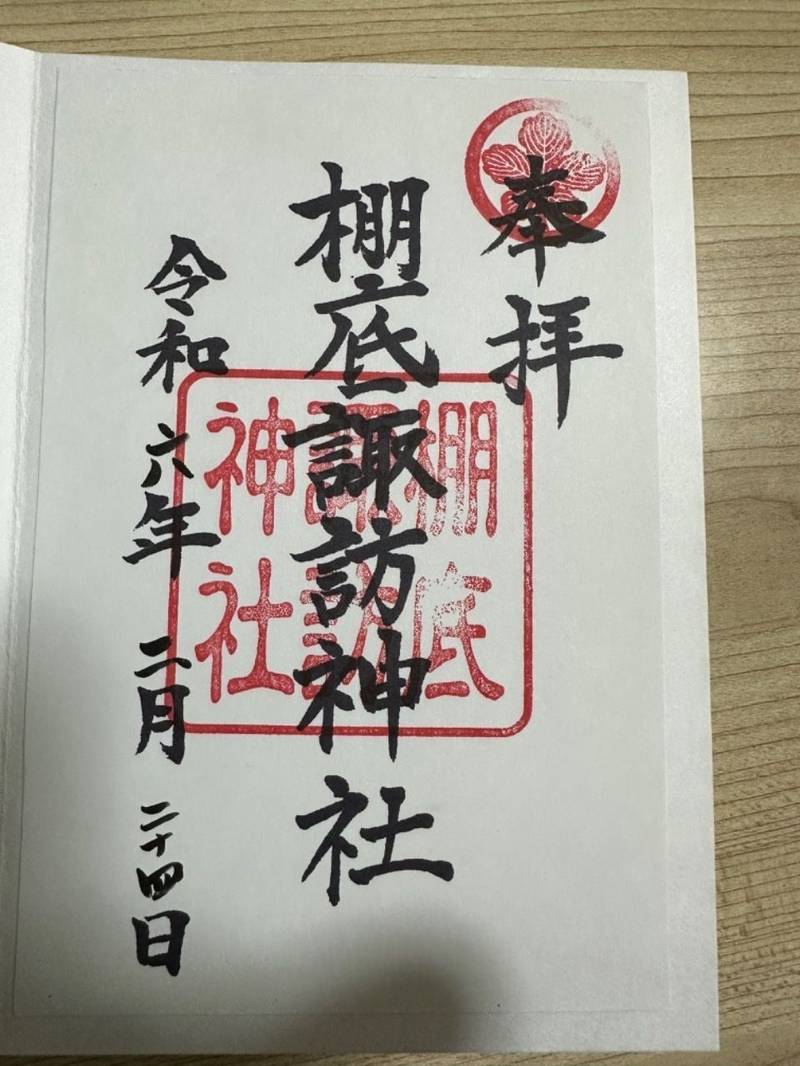 奉拝
棚底諏訪神社
棚底
諏訪
神社
令和六年二月二十四日